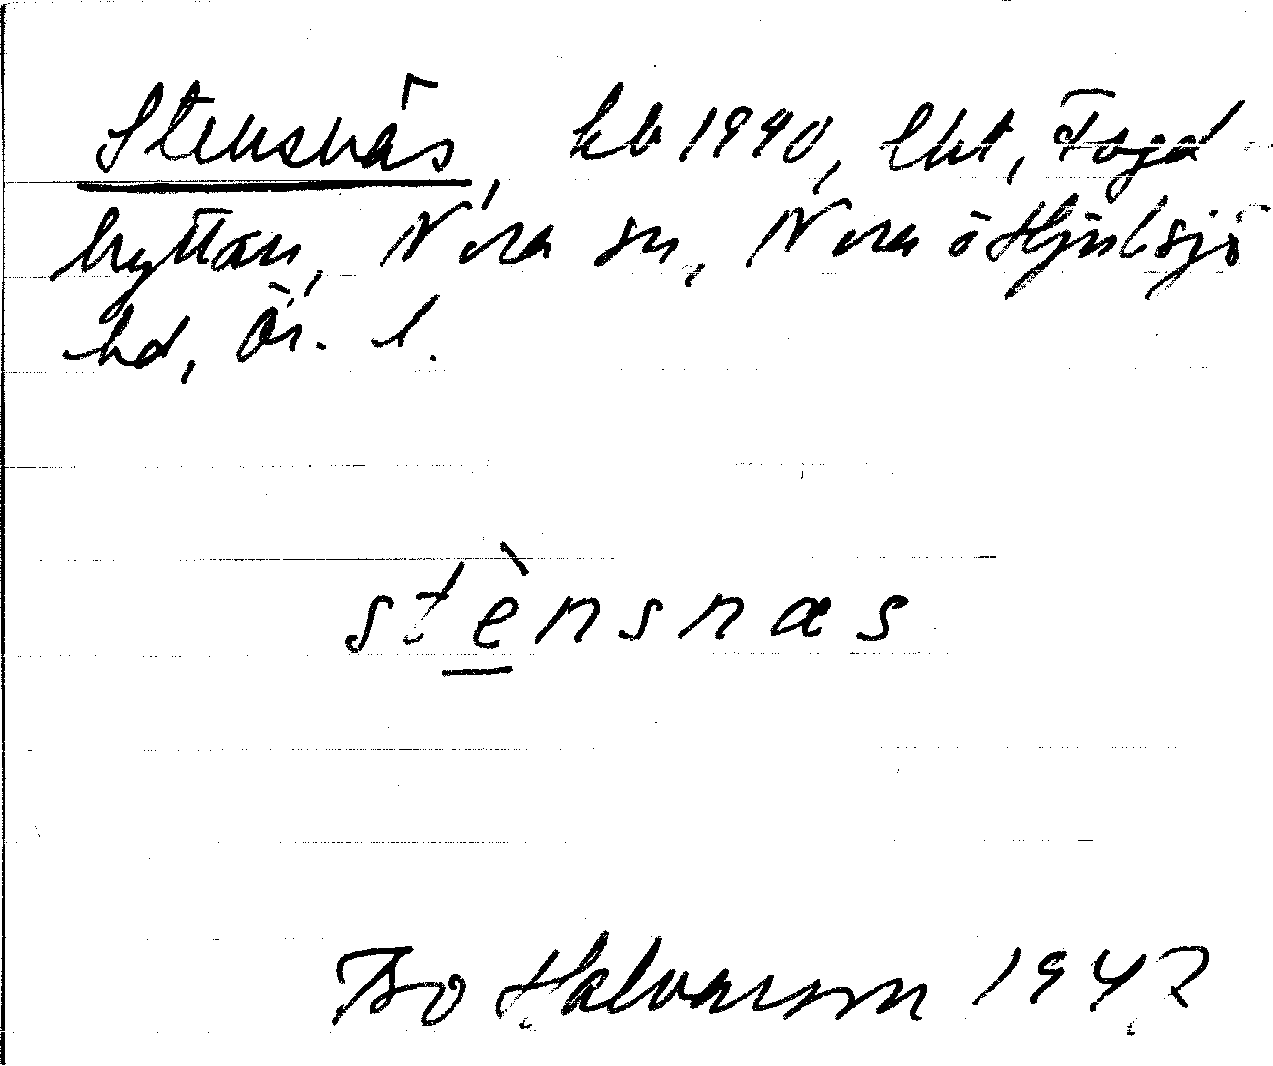 Stensnäs, kb 1940, lht, Fogd
hyttan, Nora sn, Nora o Hjulsjö
hd, Ör. l.
stènsnæs
Bo Halvarson 1947